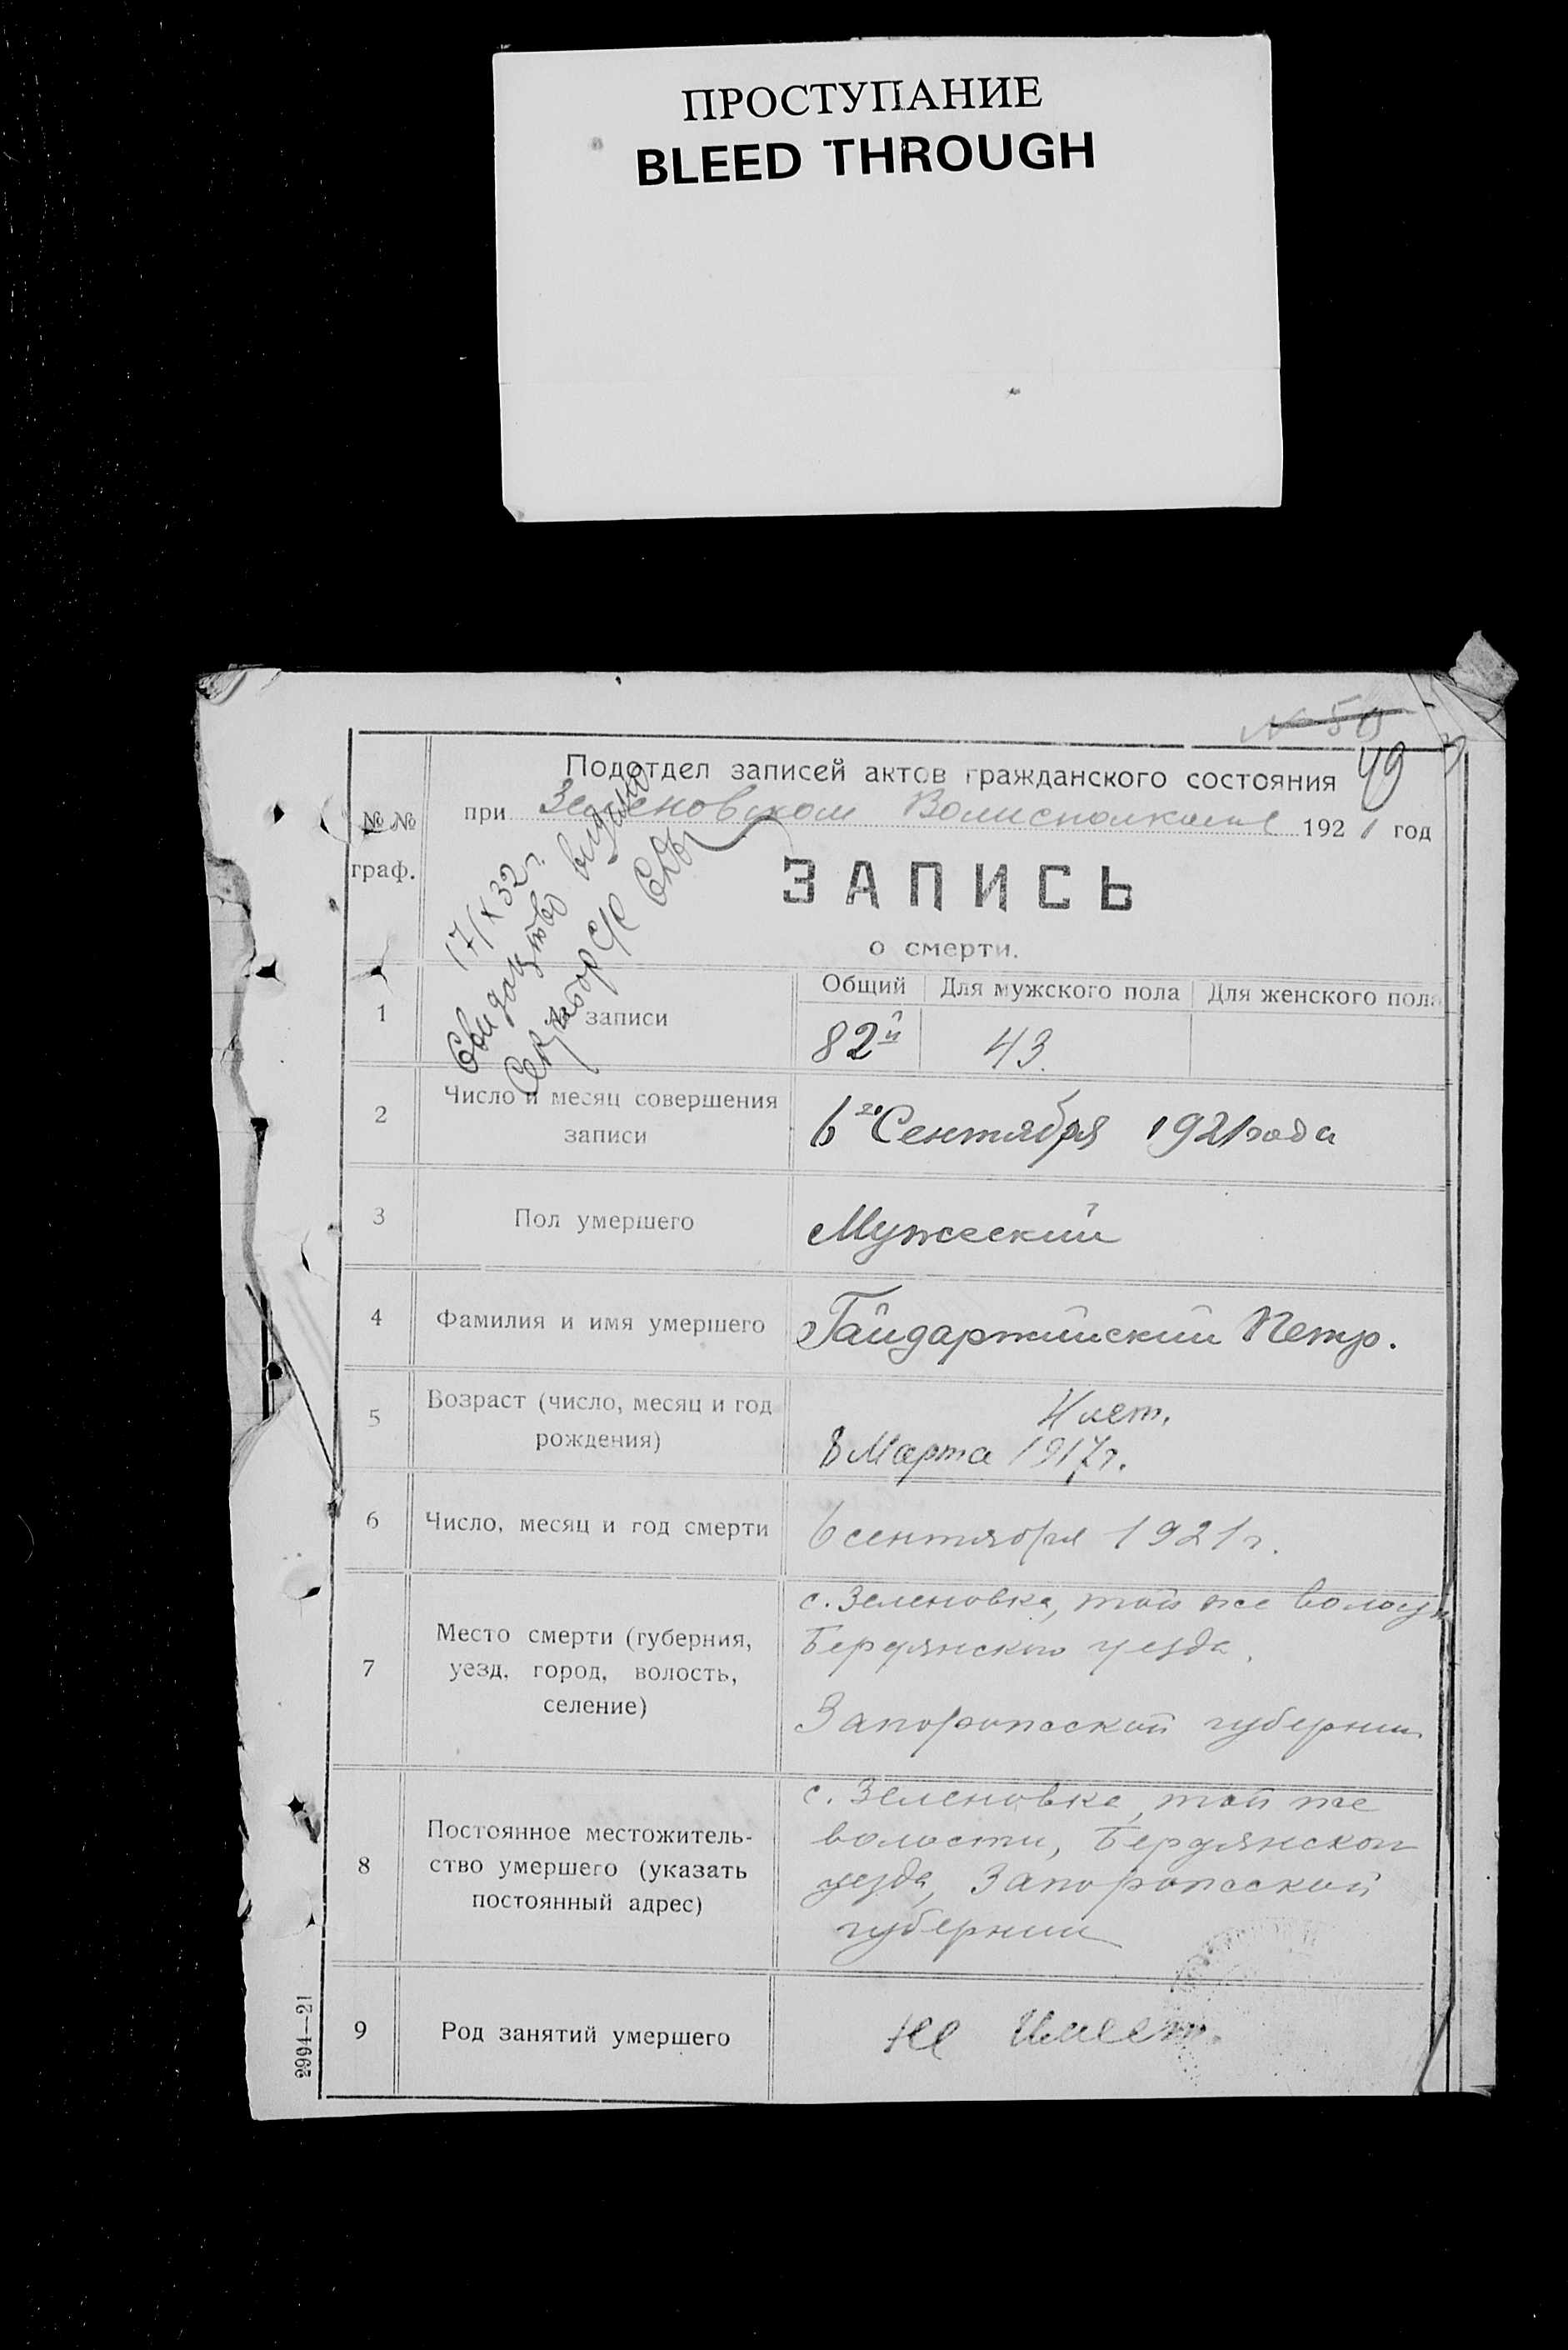 ПРОСТУПАНИЕ
BLEED THROUGH
№ 50
49
Подотдел записей актов гражданского состояния
при Зеленовском Волисполкоме 1921 год
№ №
граф.
ЗАПИСЬ
о смерти.
17/X 32 г.
Свидетство выдано
Секретар С/С
Общий Для мужского пола Для женского пола
1 № записи 82й 43.
2 Число и месяц совершения
записи
6го Сентября 1921 года
3 Пол умершего Мужеский
4 Фамилия и имя умершего Гайдаржийский Петр.
5 Возраст (число, месяц и год
рождения)
4 лет.
8 Марта 1917 г.
6 Число, месяц и год смерти 6 сентября 1921 г.
7 Место смерти (губерния,
уезд, город, волость,
селение)
с. Зеленовка, той же волости
Бердянского уезда,
Запорожской губернии
8 Постоянное местожитель-
ство умершего (указать
постоянный адрес)
с. Зеленовка, той же
волости, Бердянского
уезда, Запорожской
губернии
9 Род занятий умершего не имеет.
2994—21